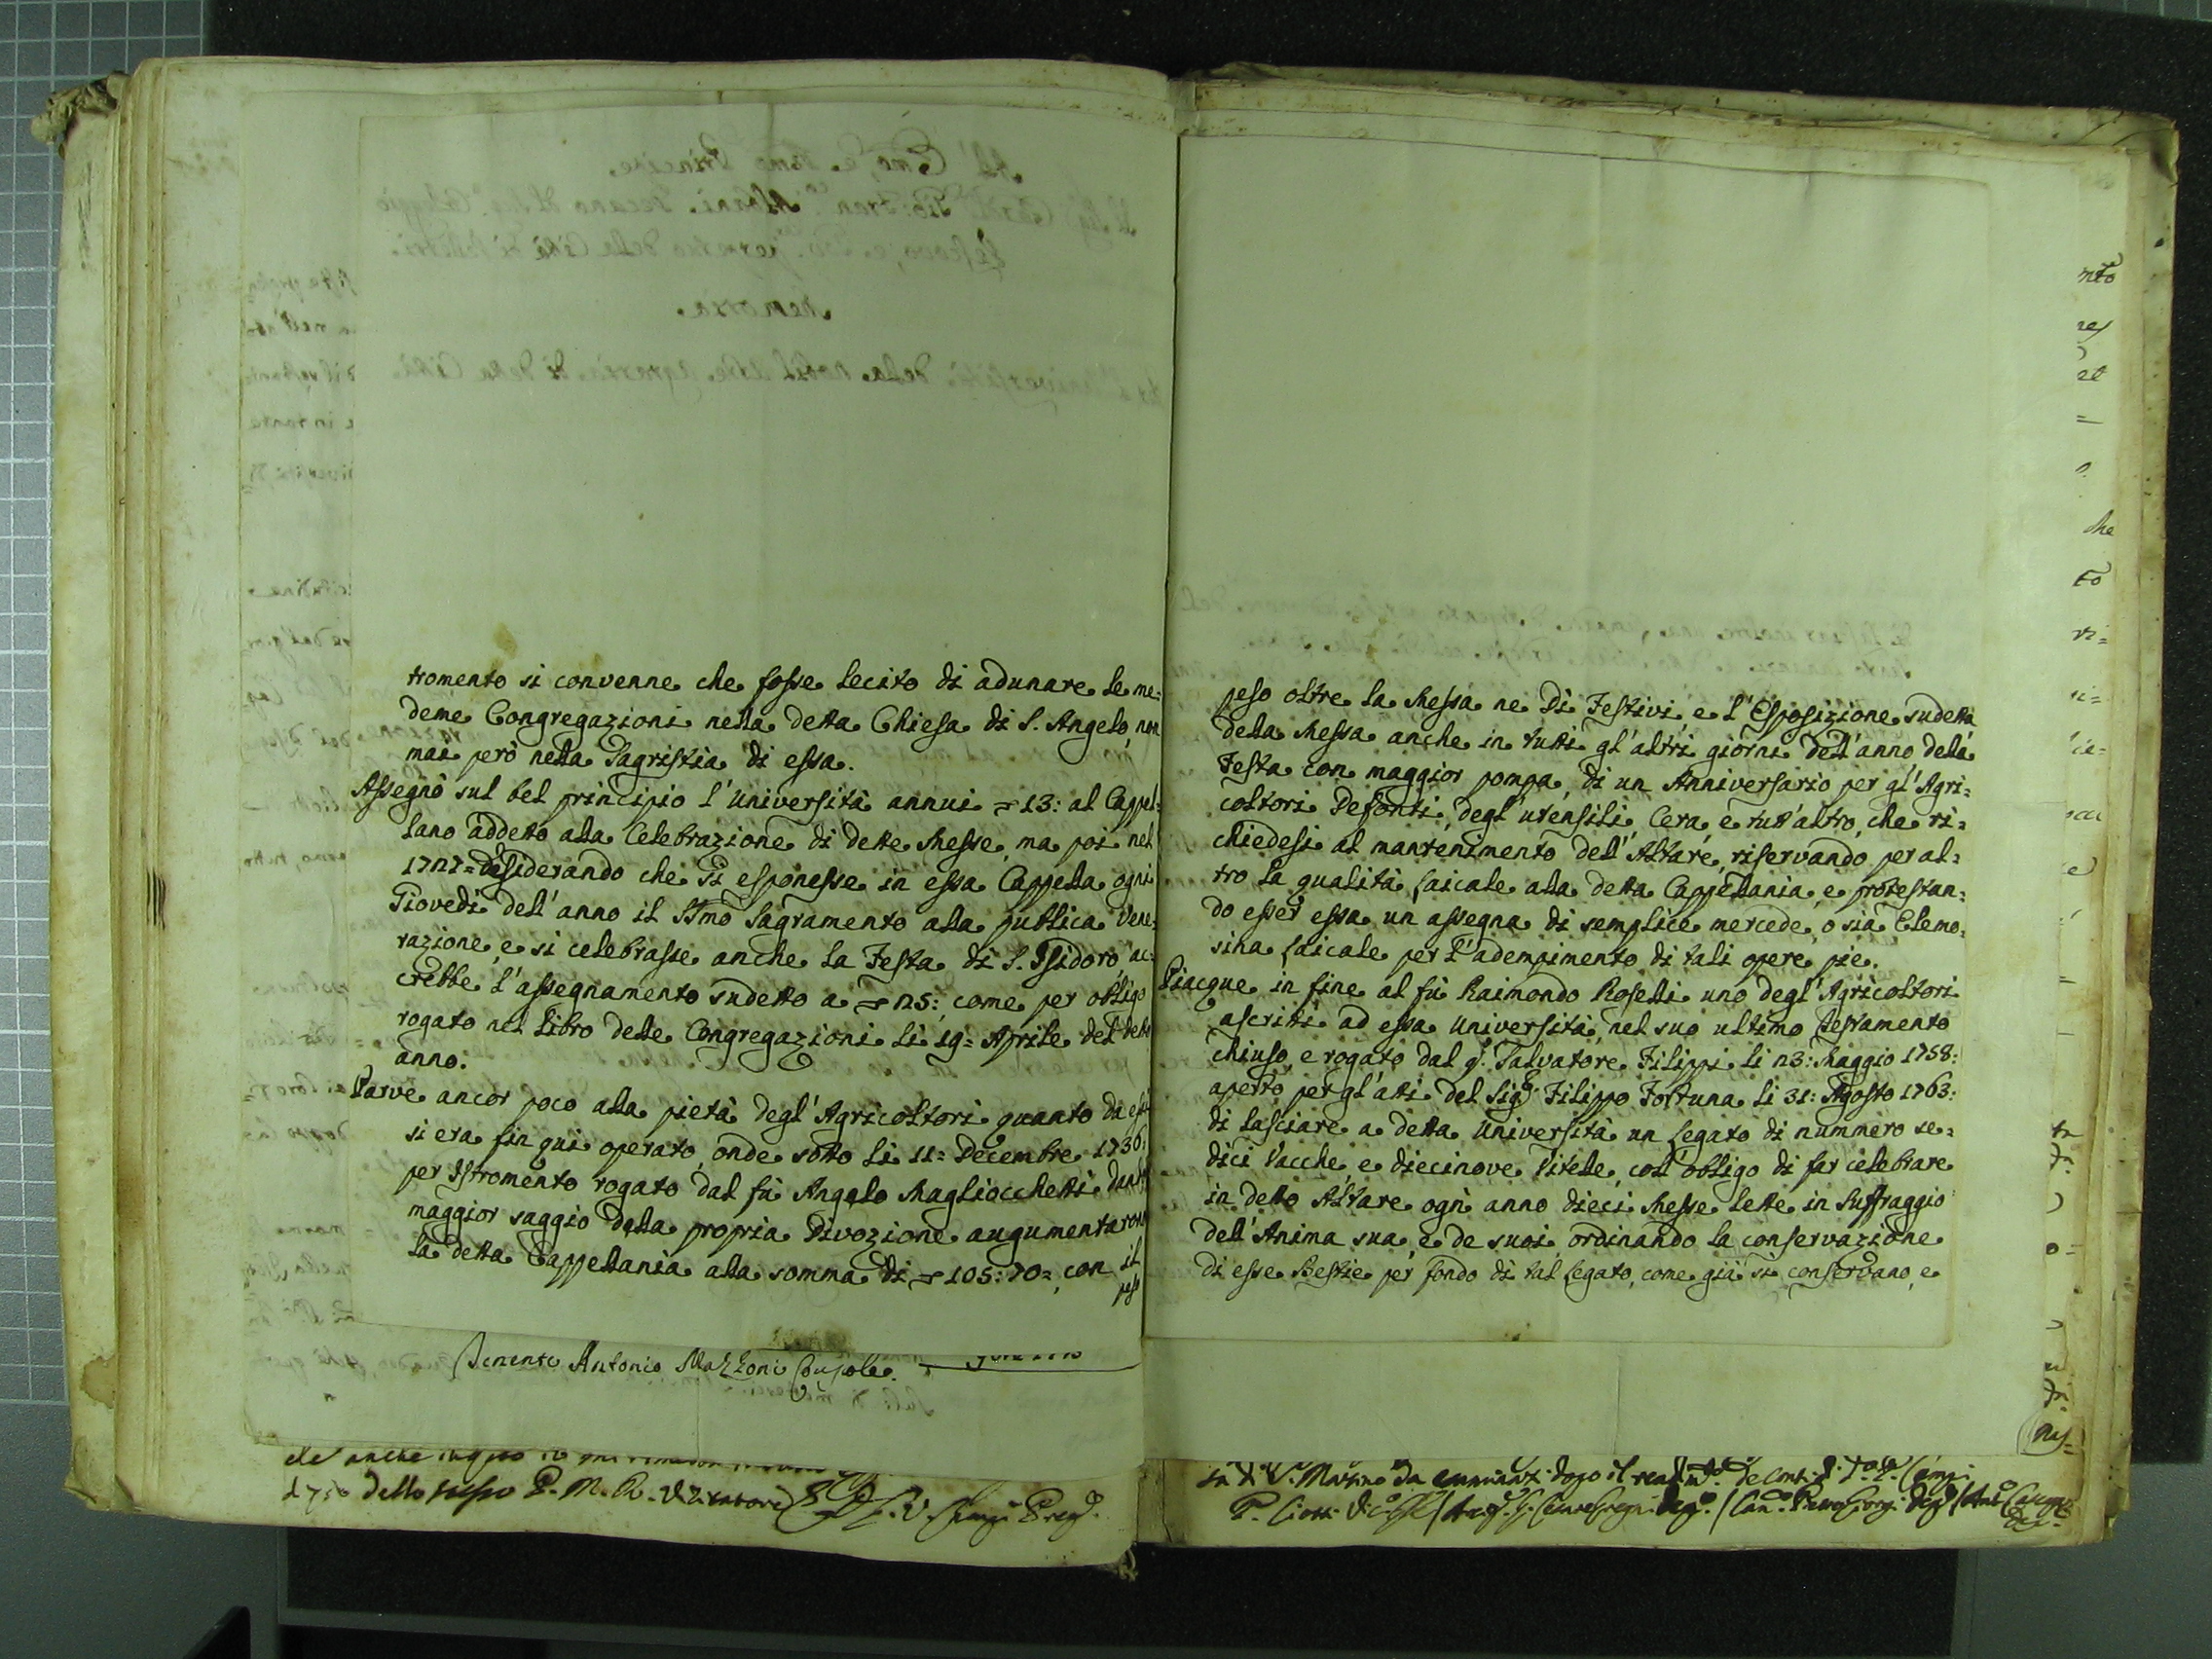 tromento si convenne che fosse lecito di adunare le me=
deme Congregazioni nella detta Chiesa di S. Angelo, non
mai però nella Sagristia di essa.
Assegnò sul bel principio l'Università annui 13: al Cappel=
lano addetto alla Celebrazione di dette Messe, ma poi nel
1727= desiderando che si esponesse in essa Cappella ogni
Giovedì dell'anno il SSmo Sagramento alla publica Vene=
razione, e si celebrasse anche la Festa di S. Isidoro, ac=
crebbe l'assegnamento sudetto a 25: come per obligo
rogato nel Libro delle Congregazioni li 19= Aprile del detto
anno.
Parve ancor poco alla pietà degl'Agricoltori quanto da essi
si era fin quì operato, onde sotto li 11= Decembre 1736:
per Istromento rogato dal fù Angelo Magliocchetti dando
maggior saggio della propria Divozione augumentarono
la detta Cappellania alla somma di 105:70=, con il
peso
Tenente Antonio Mazzoni Console.
dello stesso P. M. R.
peso oltre la Messa ne Dì Festivi, e l'Esposizione sudetta
della Messa anche in tutti gl'altri giorni dell'anno, della
Festa con maggior pompa, di un Anniversario per gl'Agri=
coltori Defonti, degl'utensili, Cera, e tutt'altro, che ri=
chiedesi al mantenimento dell'Altare, riservando per al=
tro la qualità laicale alla detta Cappellania, e protestan=
do esser essa un assegna di semplice mercede, o sia Elemo=
sina laicale per l'adempimento di tali opere pie.
Piacque in fine al fù Raimondo Roselli uno degl'Agricoltori
ascritti ad essa Università, nel suo ultimo Testamento
chiuso, e rogato dal q. Salvatore Filippi li 23: Maggio 1758:
aperto per gl'atti del Sig. Filippo Fortuna li 31: Agosto 1763:
di lasciare a detta Università un Legato di nummero se=
dici Vacche, e diecinove Vitelle, coll'obligo di far celebrare
in detto Altare ogni anno dieci Messe lette in Suffraggio
dell'Anima sua, e de suoi, ordinando la conservazione
di esse Bestie per fondo di tal Legato, come già si conservano, e